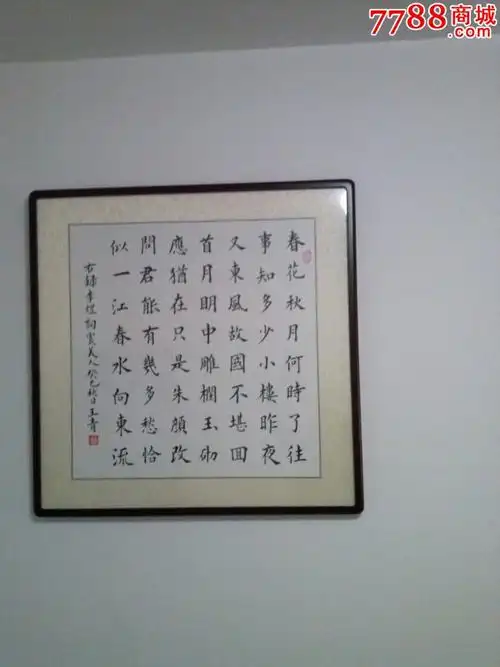 7788商城
春花秋月何時了往
事知多少小樓昨夜
又東風故國不堪回
首月明中雕欄玉砌
應猶在只是朱顏改
問君能有幾多愁恰
似一江春水向東流
右錄李煜詞虞美人癸巳秋日王青